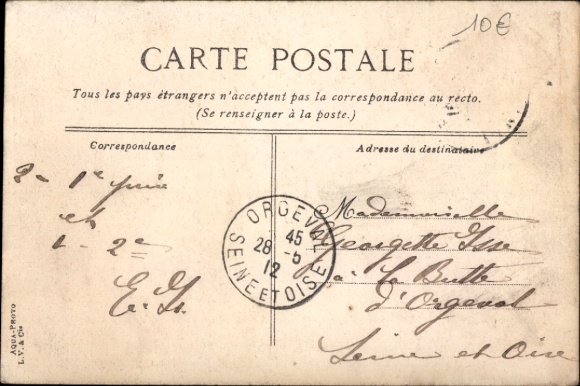 10€
CARTE POSTALE
Tous les pays étrangers n'acceptent pas la correspondance au recto.
(Se renseigner à la poste.)
Correspondance
Adresse du destinataire
2 - 1e prix
et
1 - 2e
E. Is.
ORGEVAL
45
28 -5
12
SEINE ET OISE
Mademoiselle
Georgette Isse
à la Butte
d'Orgeval
Seine et Oise
AQUA-PHOTO
L. V. & Cie